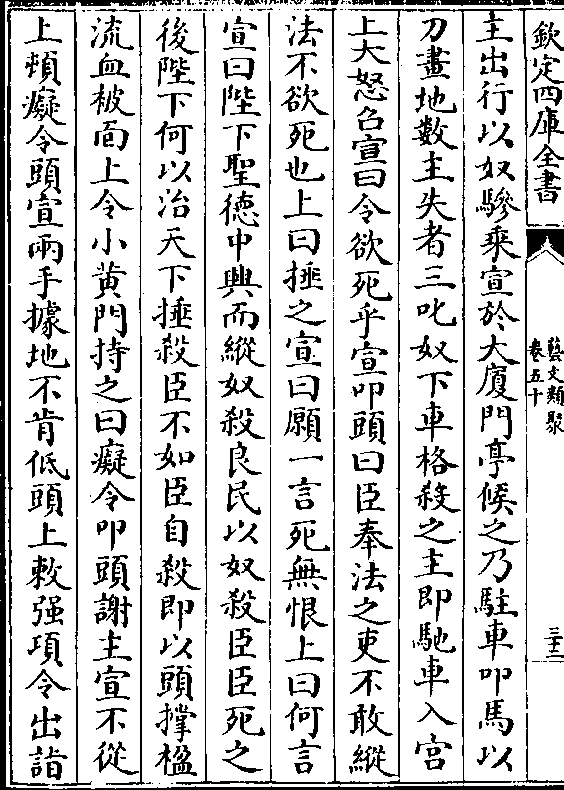 欽定四庫全書
藝文類聚
卷五十
三十二
主出行以奴驂乗宣於大廈門亭候之乃駐車叩馬以
刀畫地數主失者三叱奴下車格殺之主即馳車入宫
上大怒召宣曰令欲死乎宣叩頭曰臣奉法之吏不敢縱
法不欲死也上曰捶之宣曰願一言死無恨上曰何言
宣曰陛下聖德中興而縱奴殺良民以奴殺臣臣死之
後陛下何以治天下捶殺臣不如臣自殺即以頭撑楹
流血被面上令小黄門持之曰癡令叩頭謝主宣不從
上頓癡令頭宣兩手據地不肯低頭上敕强項令出詣